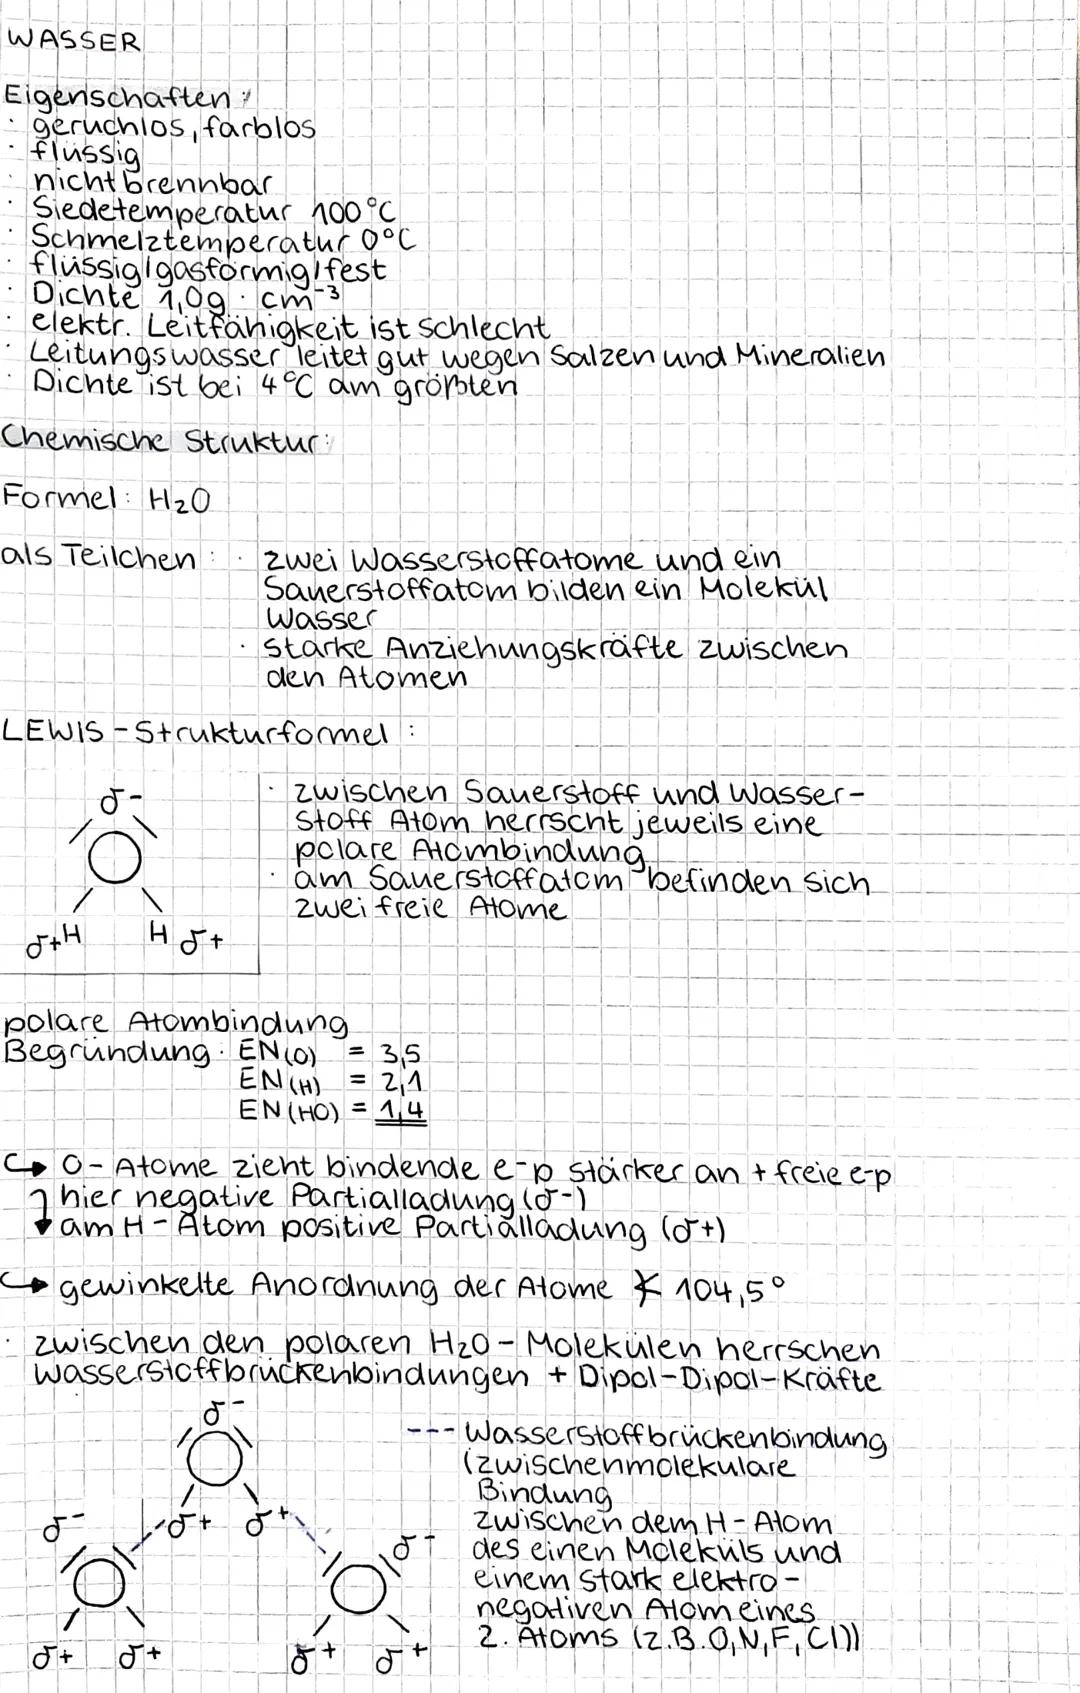 WASSER
Eigenschaften:
· geruchlos, farblos
· flüssig
· nicht brennbar
· Siedetemperatur 100°C
· Schmelztemperatur 0°C
· flüssig/gasförmig/fest
· Dichte 1,0g · cm⁻³
· elektr. Leitfähigkeit ist schlecht
· Leitungswasser leitet gut wegen Salzen und Mineralien
· Dichte ist bei 4°C am größten
Chemische Struktur:
Formel: H₂O
als Teilchen: · zwei Wasserstoffatome und ein
Sauerstoffatom bilden ein Molekül
Wasser
· starke Anziehungskräfte zwischen
den Atomen
LEWIS-Strukturformel:
δ-
δ+H H δ+
· zwischen Sauerstoff und Wasser-
stoff Atom herrscht jeweils eine
polare Atombindung
· am Sauerstoffatom befinden sich
zwei freie Atome
polare Atombindung
Begründung: EN(O) = 3,5
EN(H) = 2,1
EN(HO) = 1,4
↳ O-Atome zieht bindende e-p stärker an + freie e-p
hier negative Partialladung (δ-)
am H-Atom positive Partialladung (δ+)
↳ gewinkelte Anordnung der Atome ∢ 104,5°
· zwischen den polaren H₂O-Molekülen herrschen
Wasserstoffbrückenbindungen + Dipol-Dipol-Kräfte
δ-
δ+ δ+
δ-
δ+ δ+
δ-
δ+ δ+
--- Wasserstoffbrückenbindung
(zwischenmolekulare
Bindung
zwischen dem H-Atom
des einen Moleküls und
einem stark elektro-
negativen Atom eines
2. Atoms (z.B. O, N, F, Cl))